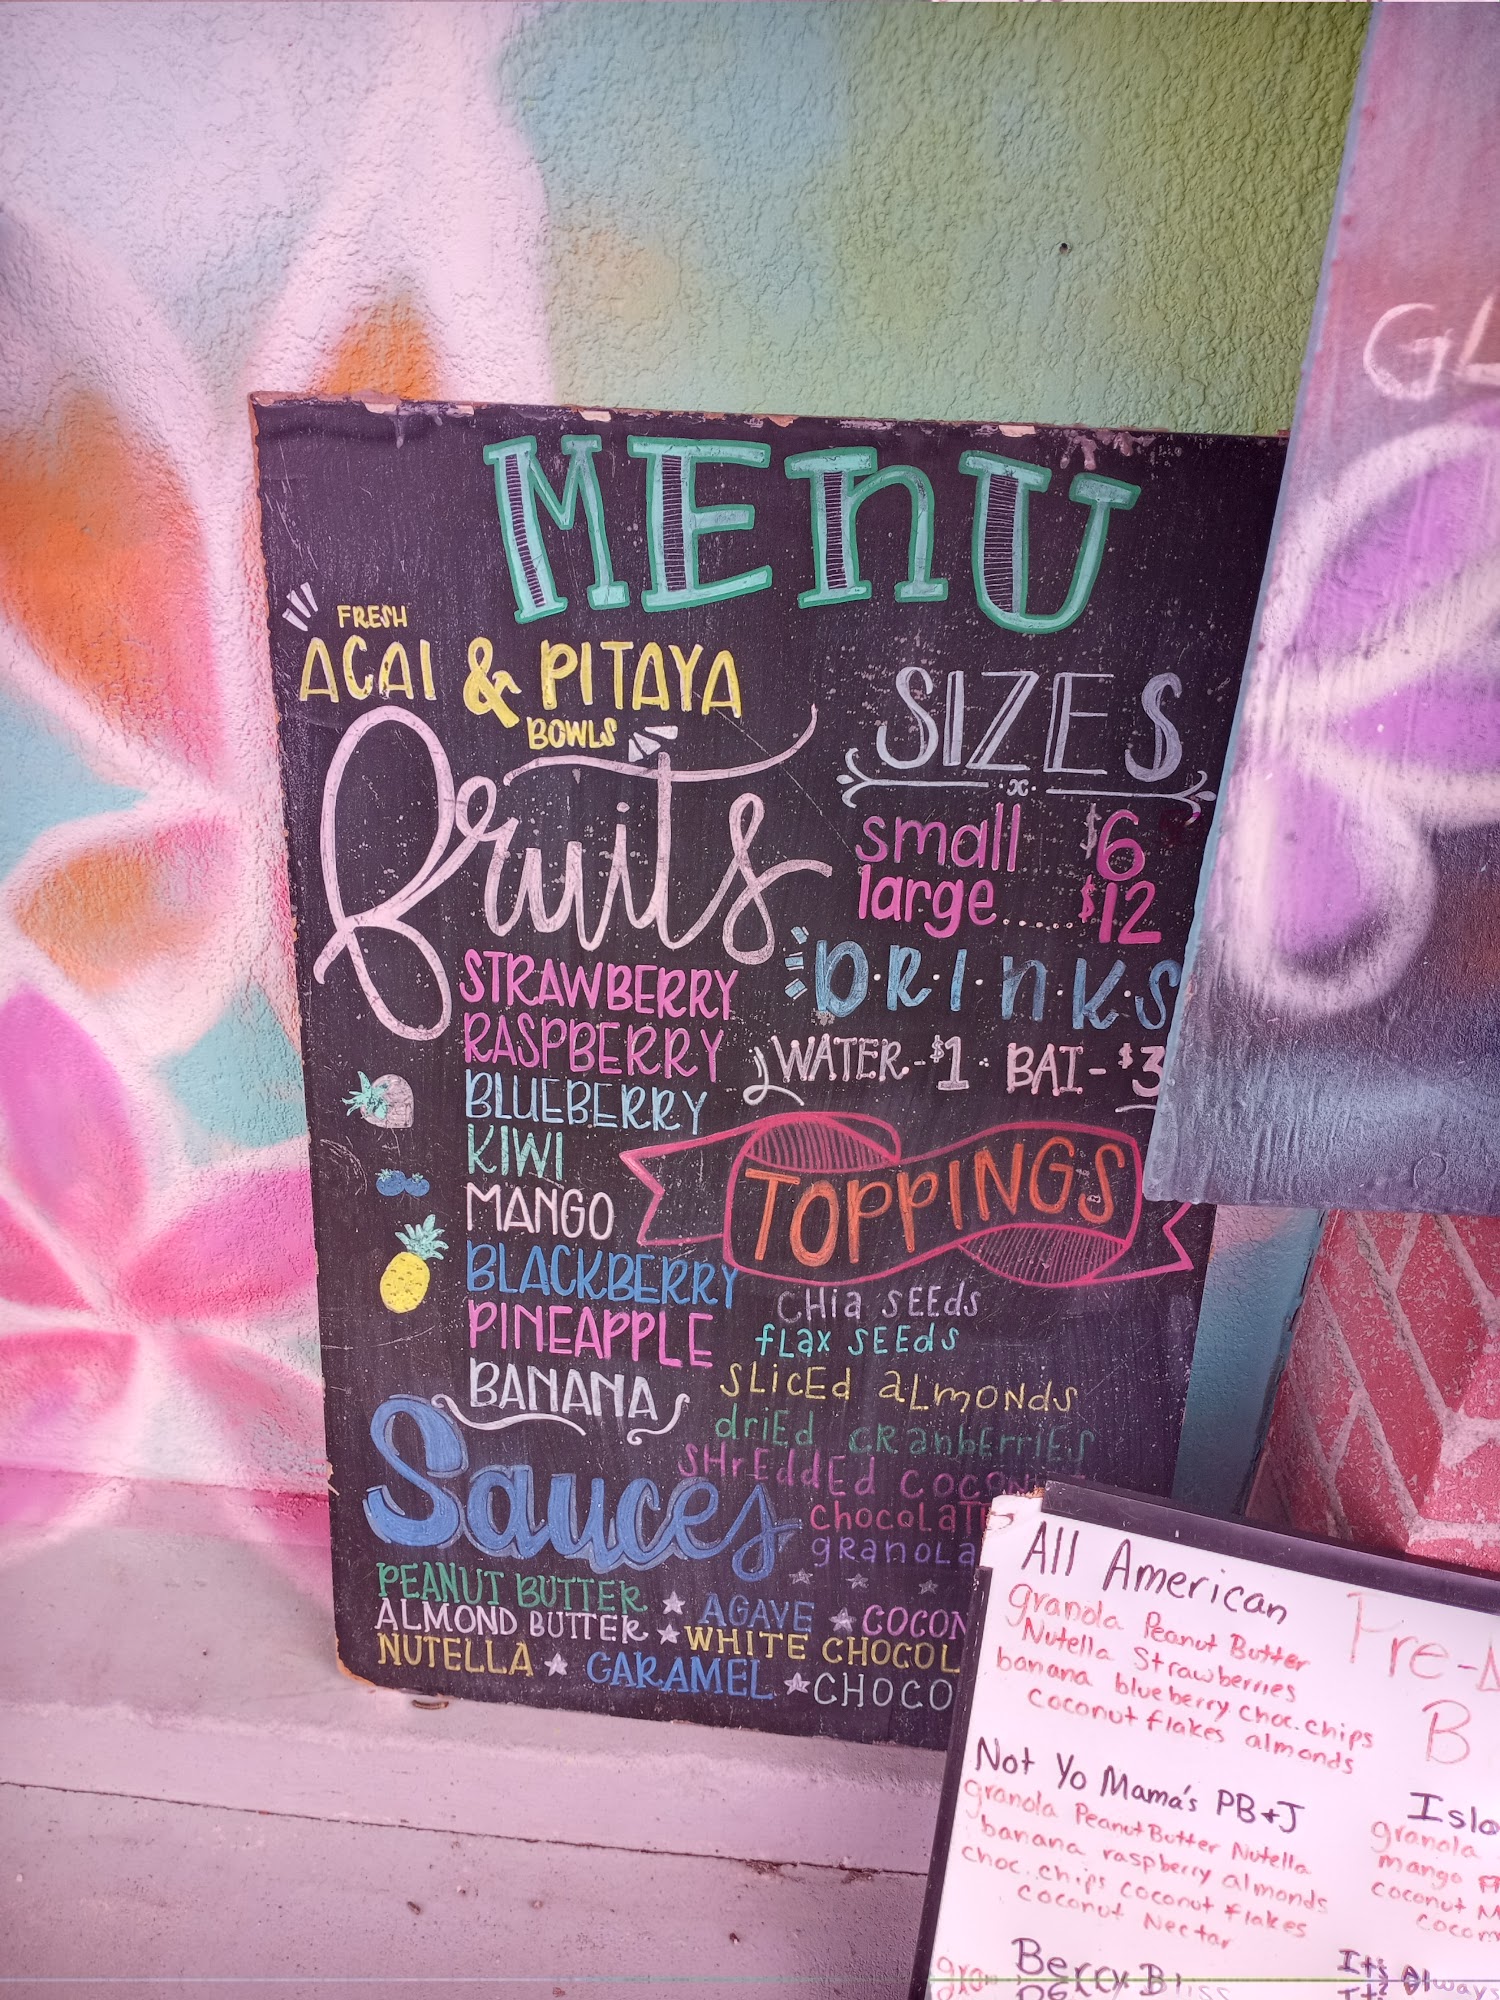 MENU
FRESH
ACAI & PITAYA
BOWLS
fruits
STRAWBERRY
RASPBERRY
BLUEBERRY
KIWI
MANGO
BLACKBERRY
PINEAPPLE
BANANA
SIZES
small $6
large..... $12
D·R·I·N·K·S
WATER-$1· BAI-$3
TOPPINGS
CHIA SEEDS
FLAX SEEDS
SLICED ALMONDS
DRIED CRANBERRIES
SHREDDED
GRANOLA
Sauces
PEANUT BUTTER ★ AGAVE ★
ALMOND BUTTER ★ WHITE
NUTELLA ★ CARAMEL ★
All American
granola Peanut Butter
Nutella Strawberries
banana blueberry choc.chips
coconut flakes almonds
Not Yo Mama's PB+J
granola Peanut Butter Nutella
banana raspberry almonds
choc.chips coconut flakes
coconut Nectar
Berry Bliss
granola
mango
coconut
It's Always